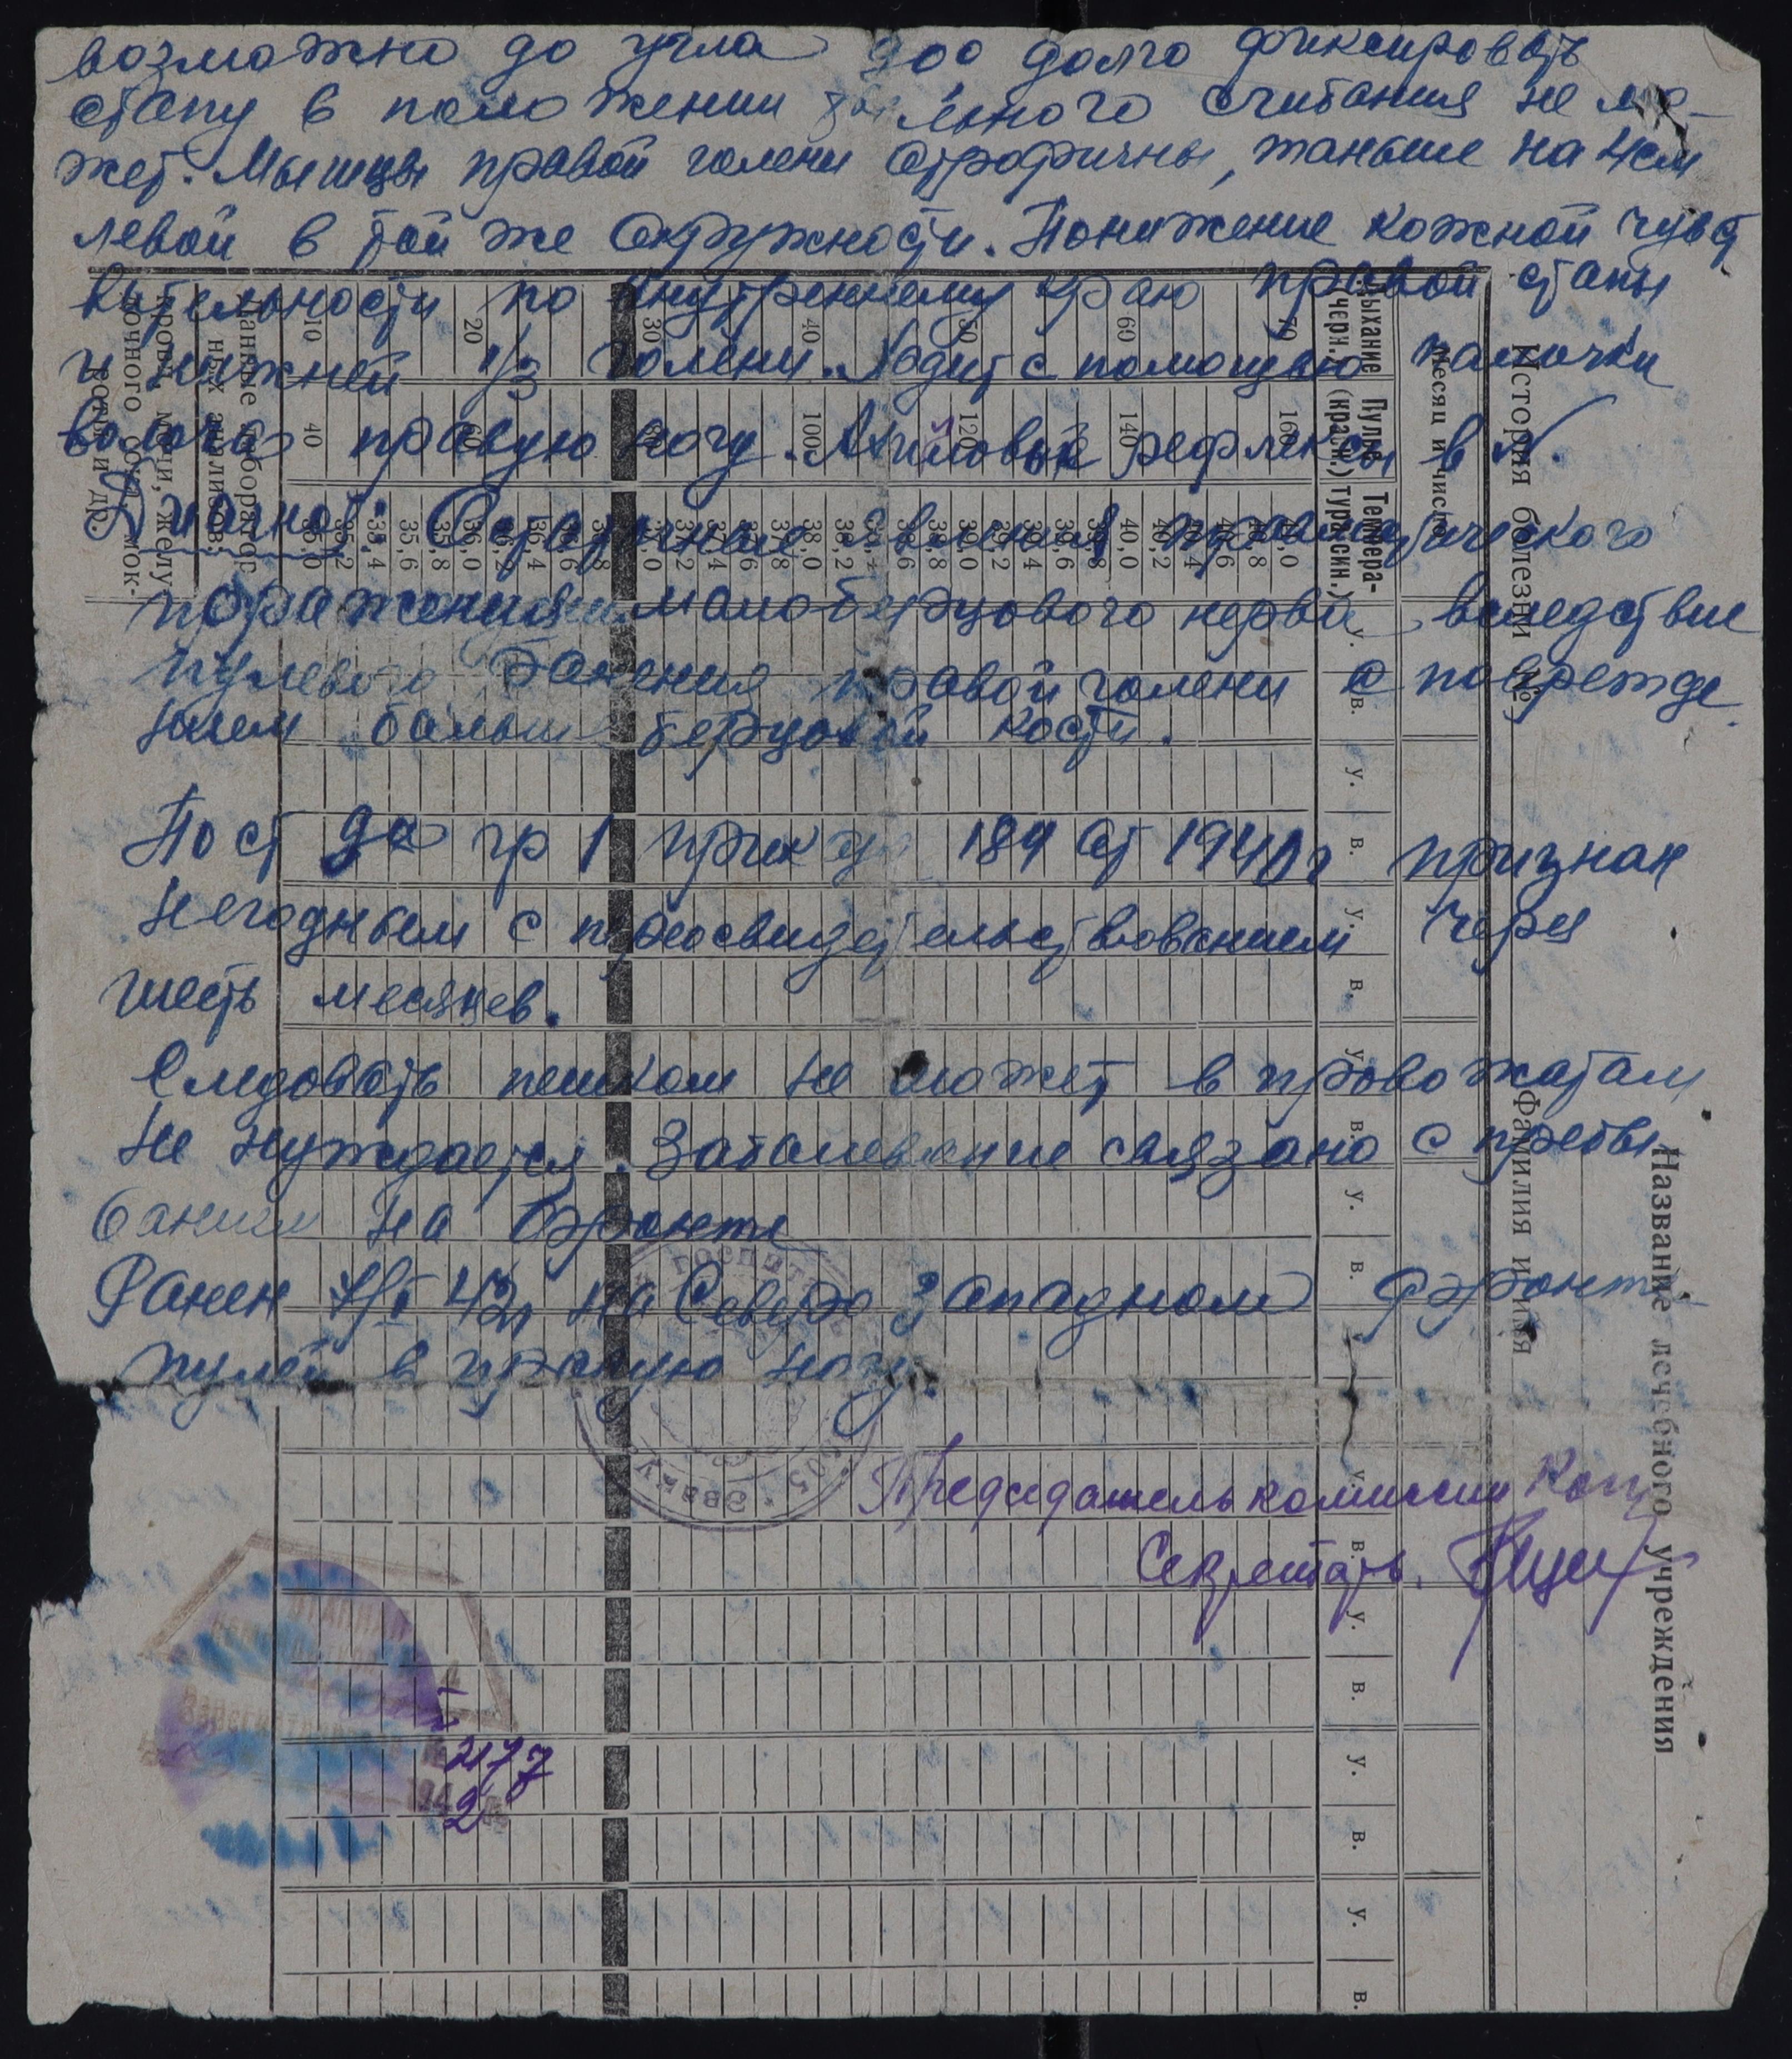 возможно до угла 90° долго фиксировать
стапу в положении сгибания не мо-
жет. Мышцы правой голени отрофичны, таньше на 4см
левой в той же окружности. Понижение кожной чувст
вительности по внутреннему краю правой стапы
и нижней 1/3 голени. Ходит с помощью палочки
волоча правую ногу. Ахиловы рефлексы в N.
Диагноз: явления травматического
поражения малоберцового нерва вследствие
пулевого ранения правой голени с поврежде
нием больше берцовой кости.
Пост да гр 1 приказа 184 от 1940г признан
негодным с переосвидетельствованием через
шесть месяцев.
Следовать пешком не может в провожатам
не нуждается. Заболевание связано с пребы
банием на фронте
Ранен 42г на Северо Западном фронте
пулей в правую ногу.
Председатель комиссии
Секретарь
477
2
Название лечебного учреждения
Фамилия и имя
История болезни №
Месяц и число
Дыхание (черн.) Пульс (красн.) Температура (син.)
70 160 41,0
40,8
40,6
40,4
40,2
60 140 40,0
39,8
39,6
39,4
39,2
50 120 39,0
38,8
38,6
38,4
38,2
40 100 38,0
37,8
37,6
37,4
37,2
30 80 37,0
36,8
36,6
36,4
36,2
20 60 36,0
35,8
35,6
35,4
35,2
10 40 35,0
Данные лаборатор-
ных анализов:
крови, мочи, желу-
дочного сока, мок-
роты и др.
у. в. у. в. у. в. у. в. у. в. у. в. у. в. у. в. у. в. у. в.